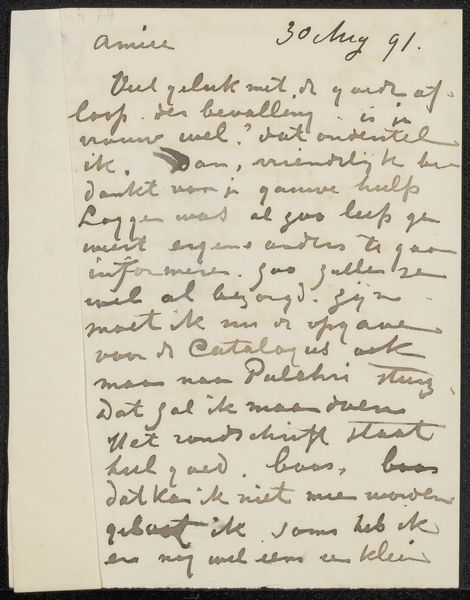 Amice 30 Aug 91.
Veel geluk met de goede af-
loop der bevalling. is je
vrouw wel? dat onderstel
ik. Dan, vriendelijk be
dankt voor je gauwe hulp
Loggen was al zoo leep ge
weest ergens anders te gaan
informeren. zoo zullen ze
wel al bezorgd zijn
moet ik nu de opgave
voor de Catalogus ook
maar naar Pulchri sturen
dat zal ik maar doen
Het rondschrift staat
heel goed. boos, boos
dat kan ik niet meer worden
ik soms heb ik
er nog wel eens een klein